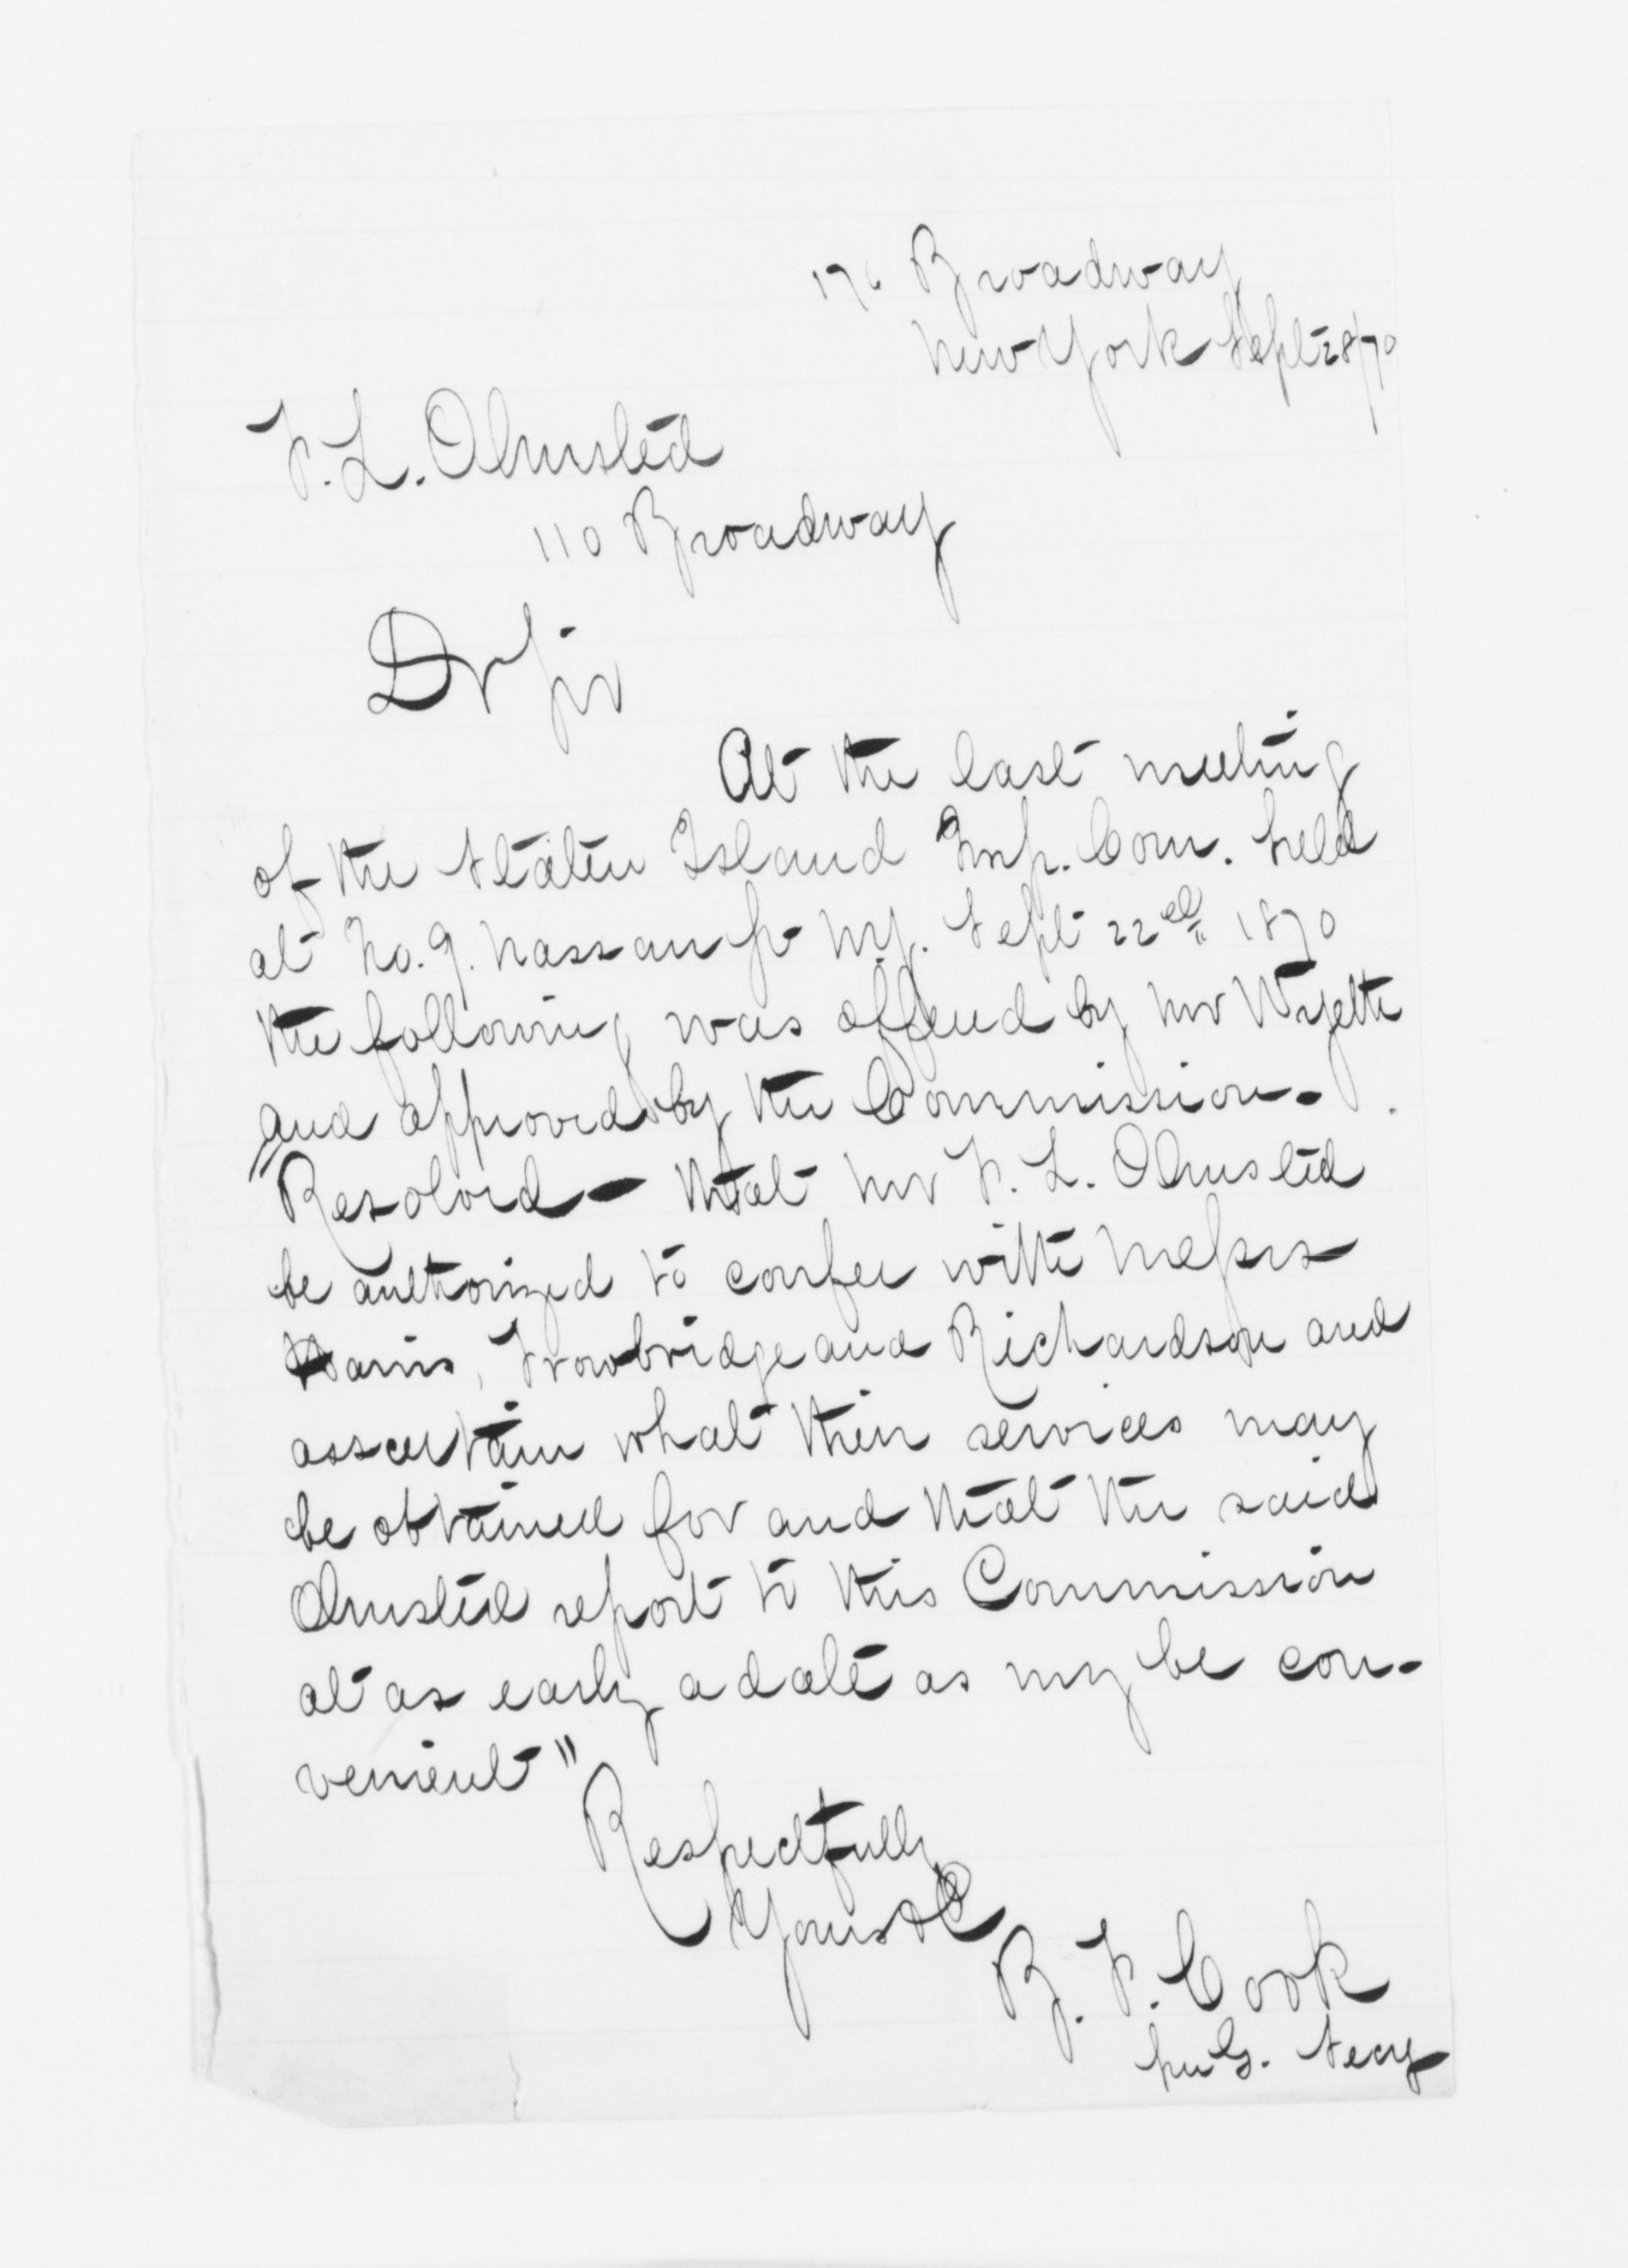 176 Broadway
New York Sept 28/70
F. L. Olmsted
110 Broadway
Dr Sir
At the last meeting
of the Staten Island Imp. Com. held
at No. 9. Nassau St N.Y. Sept 22nd 1870
the following was offered by Mr Wyeth
and approved by the Commission.
"Resolved - That Mr F. L. Olmsted
be authorized to confer with Messrs
Harris, Trowbridge and Richardson and
asscertain what their services may
be obtained for and that the said
Olmsted report to this Commission
at as early a date as my be con-
venient"
Respectfully
Yours &c
B. F. Cook
Secy